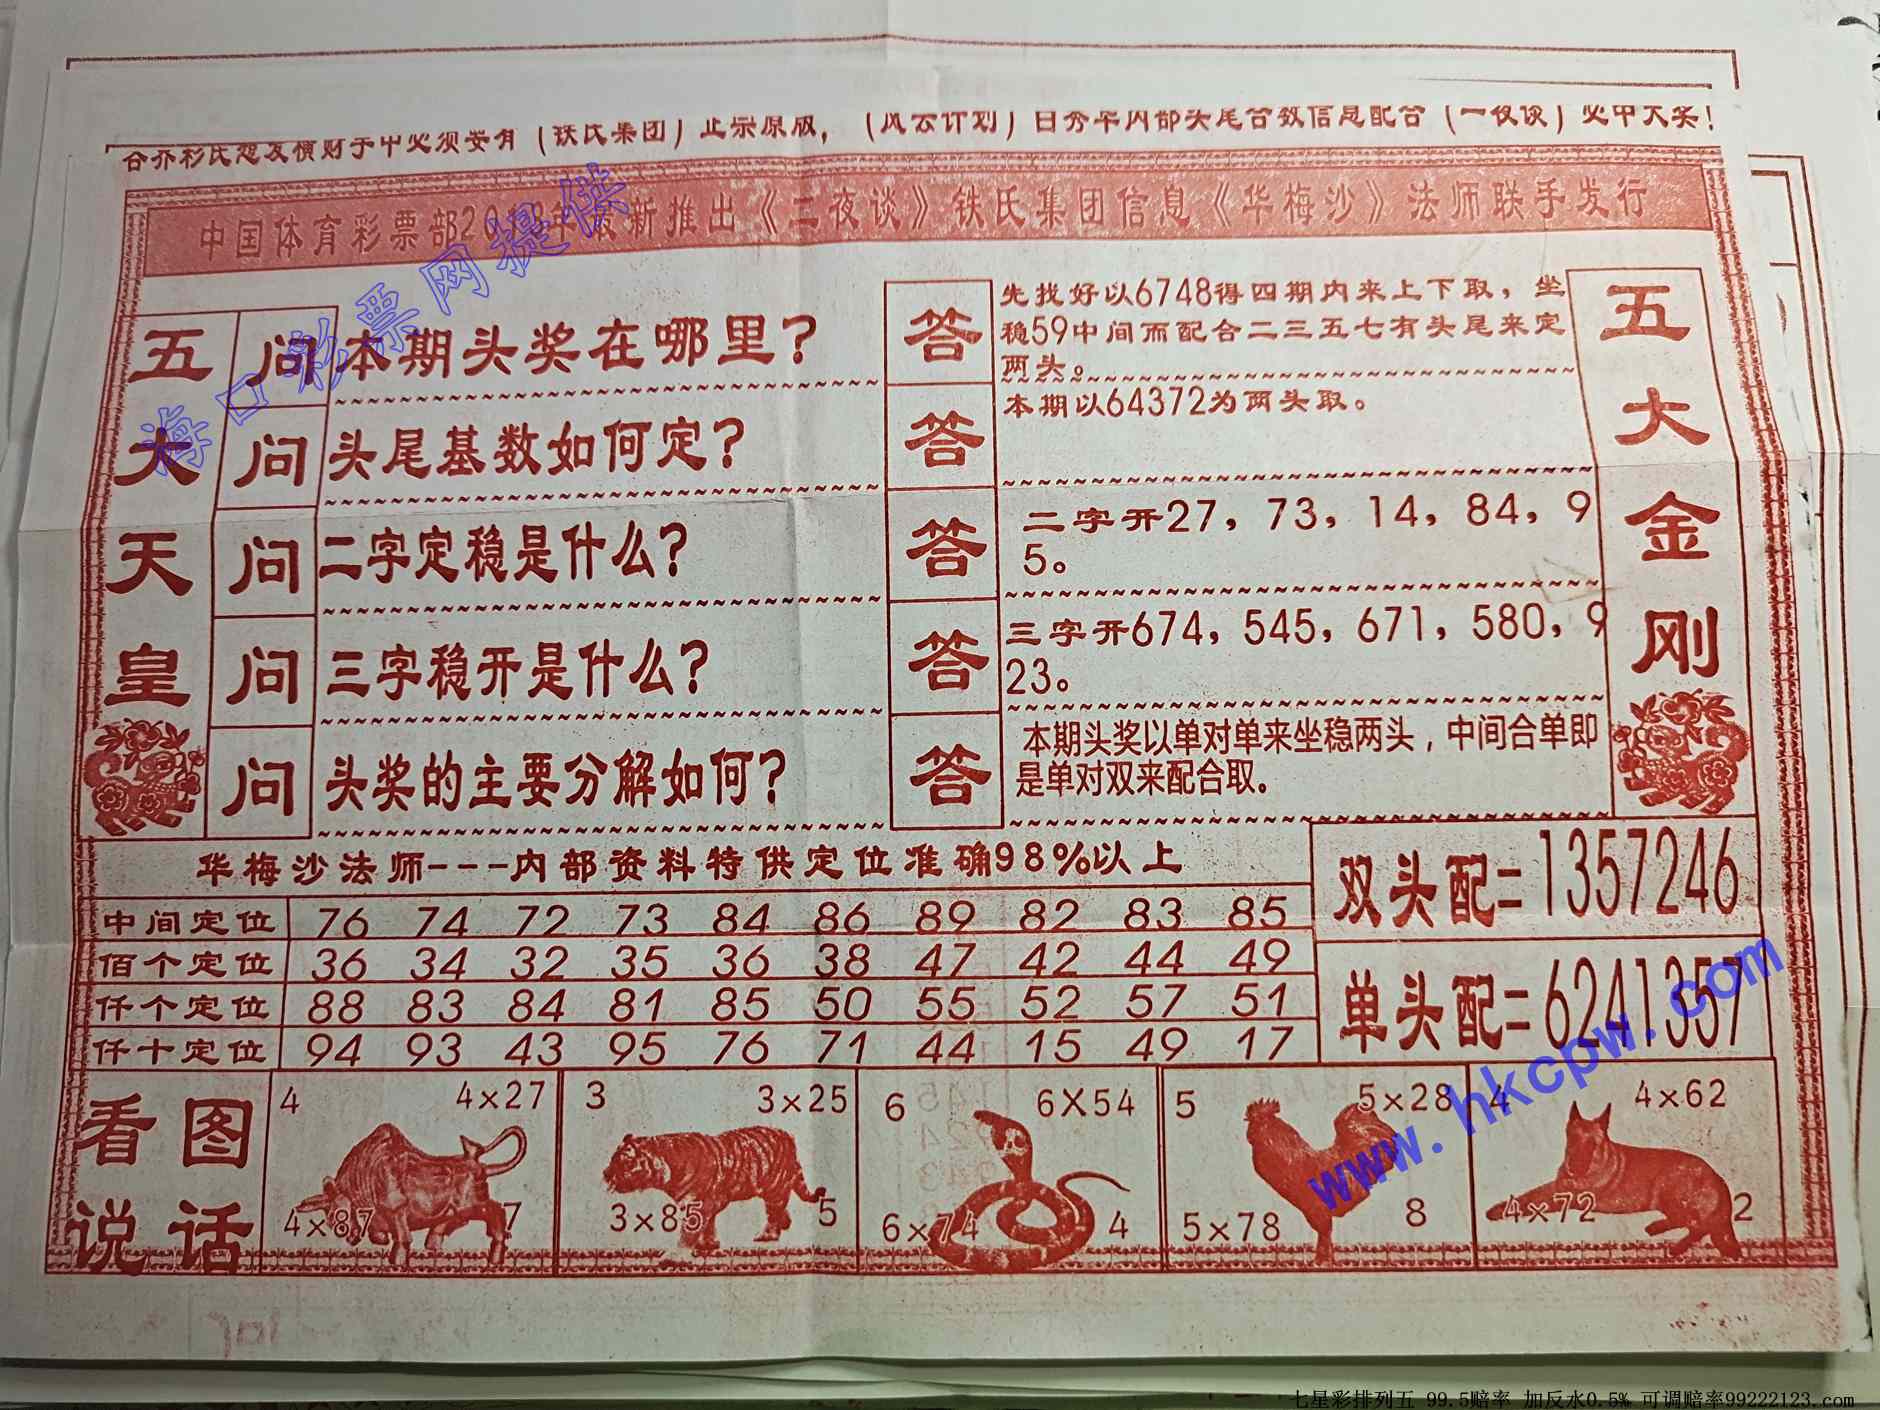 (铁氏集团)正宗原版，(风云计划)日夯年内部头尾合数信息配合(一夜谈)必中大奖!
中国体育彩票部20 年最新推出《二夜谈》铁氏集团信息《华梅沙》法师联手发行
海口彩票网提供
五大天皇
问 本期头奖在哪里?
答 先找好以6748得四期内来上下取，坐
稳59中间而配合二三五七有头尾来定
两头。
问 头尾基数如何定?
答 本期以64372为两头取。
问 二字定稳是什么?
答 二字开27，73，14，84，9
5。
问 三字稳开是什么?
答 三字开674，545，671，580，9
23。
问 头奖的主要分解如何?
答 本期头奖以单对单来坐稳两头，中间合单即
是单对双来配合取。
五大金刚
华梅沙法师---内部资料特供定位准确98%以上
中间定位 76 74 72 73 84 86 89 82 83 85
佰个定位 36 34 32 35 36 38 47 42 44 49
仟个定位 88 83 84 81 85 50 55 52 57 51
仟十定位 94 93 43 95 76 71 44 15 49 17
双头配=1357246
单头配=6241357
看图
说话
4 4×27
4×87 7
3 3×25
3×85 5
6 6X54
6×74 4
5 5×28
5×78 8
4 4×62
4×72 2
www.hkcpw.com
七星彩排列五 99.5赔率 加反水0.5% 可调赔率99222123.com